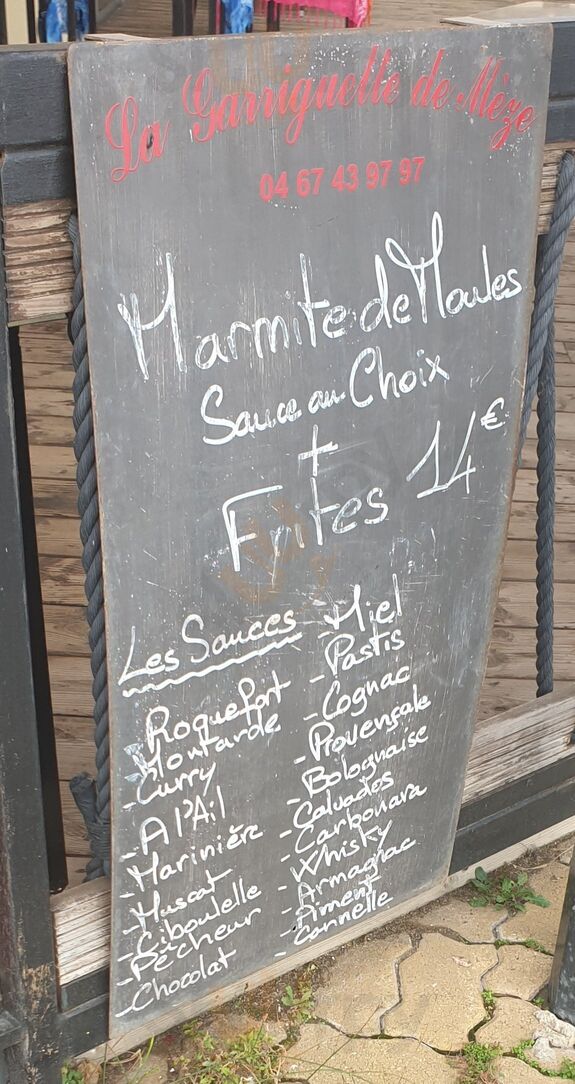 La Garriguette de Mèze
04 67 43 97 97
Marmite de Moules
Sauce au Choix
+
Frites 14€
Les Sauces
- Roquefort
- Moutarde
- Curry
- A l'Ail
- Marinière
- Muscat
- Ciboulelle
- Pêcheur
- Chocolat
- Miel
- Pastis
- Cognac
- Provençale
- Bolognaise
- Calvados
- Carbonara
- Whisky
- Armagnac
- Piment
- Cannelle